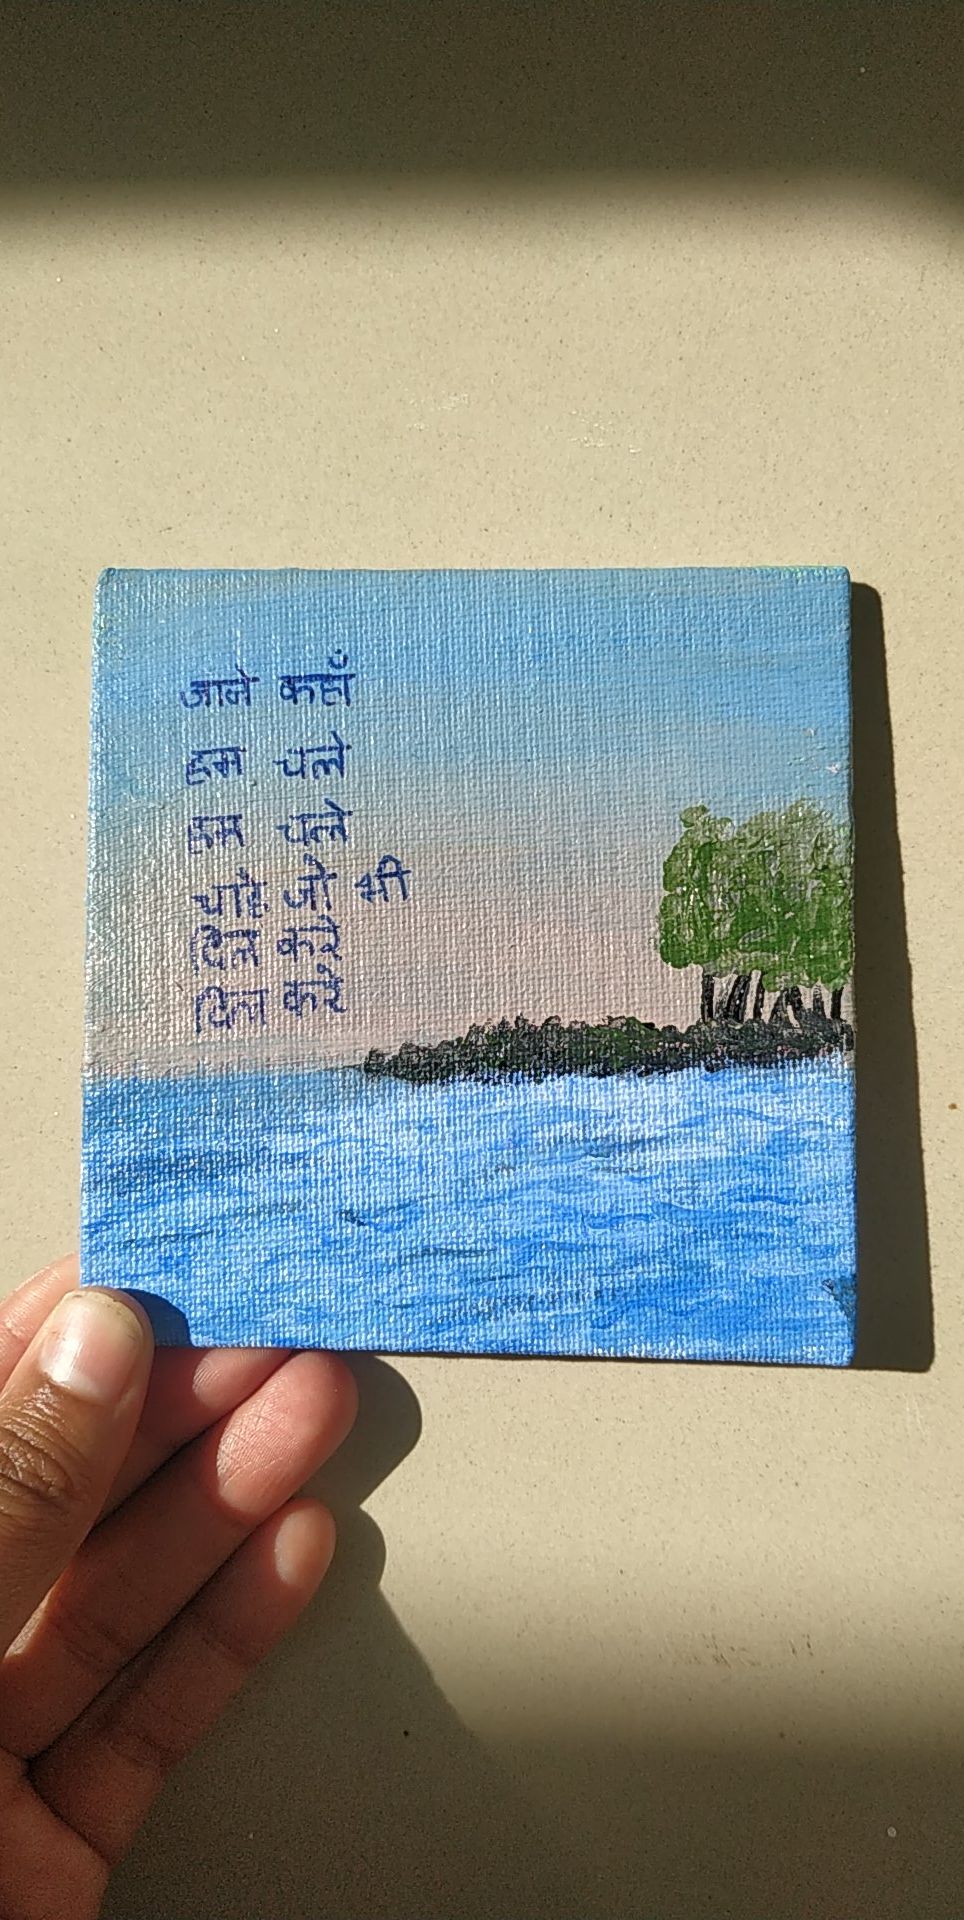 जाने कहाँ
हम चले
हम चले
चाहे जो भी
दिल करे
दिल करे